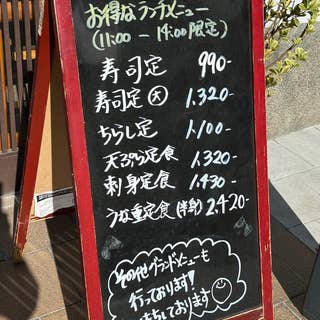 お得なランチメニュー
(11:00 ー 14:00限定)
寿司定 990-
寿司定 大 1,320-
ちらし定 1,100-
天ぷら定食 1,320-
刺身定食 1,430-
うな重定食(半身) 2,420-
その他グランドメニューも
行っております!
お待ちしております